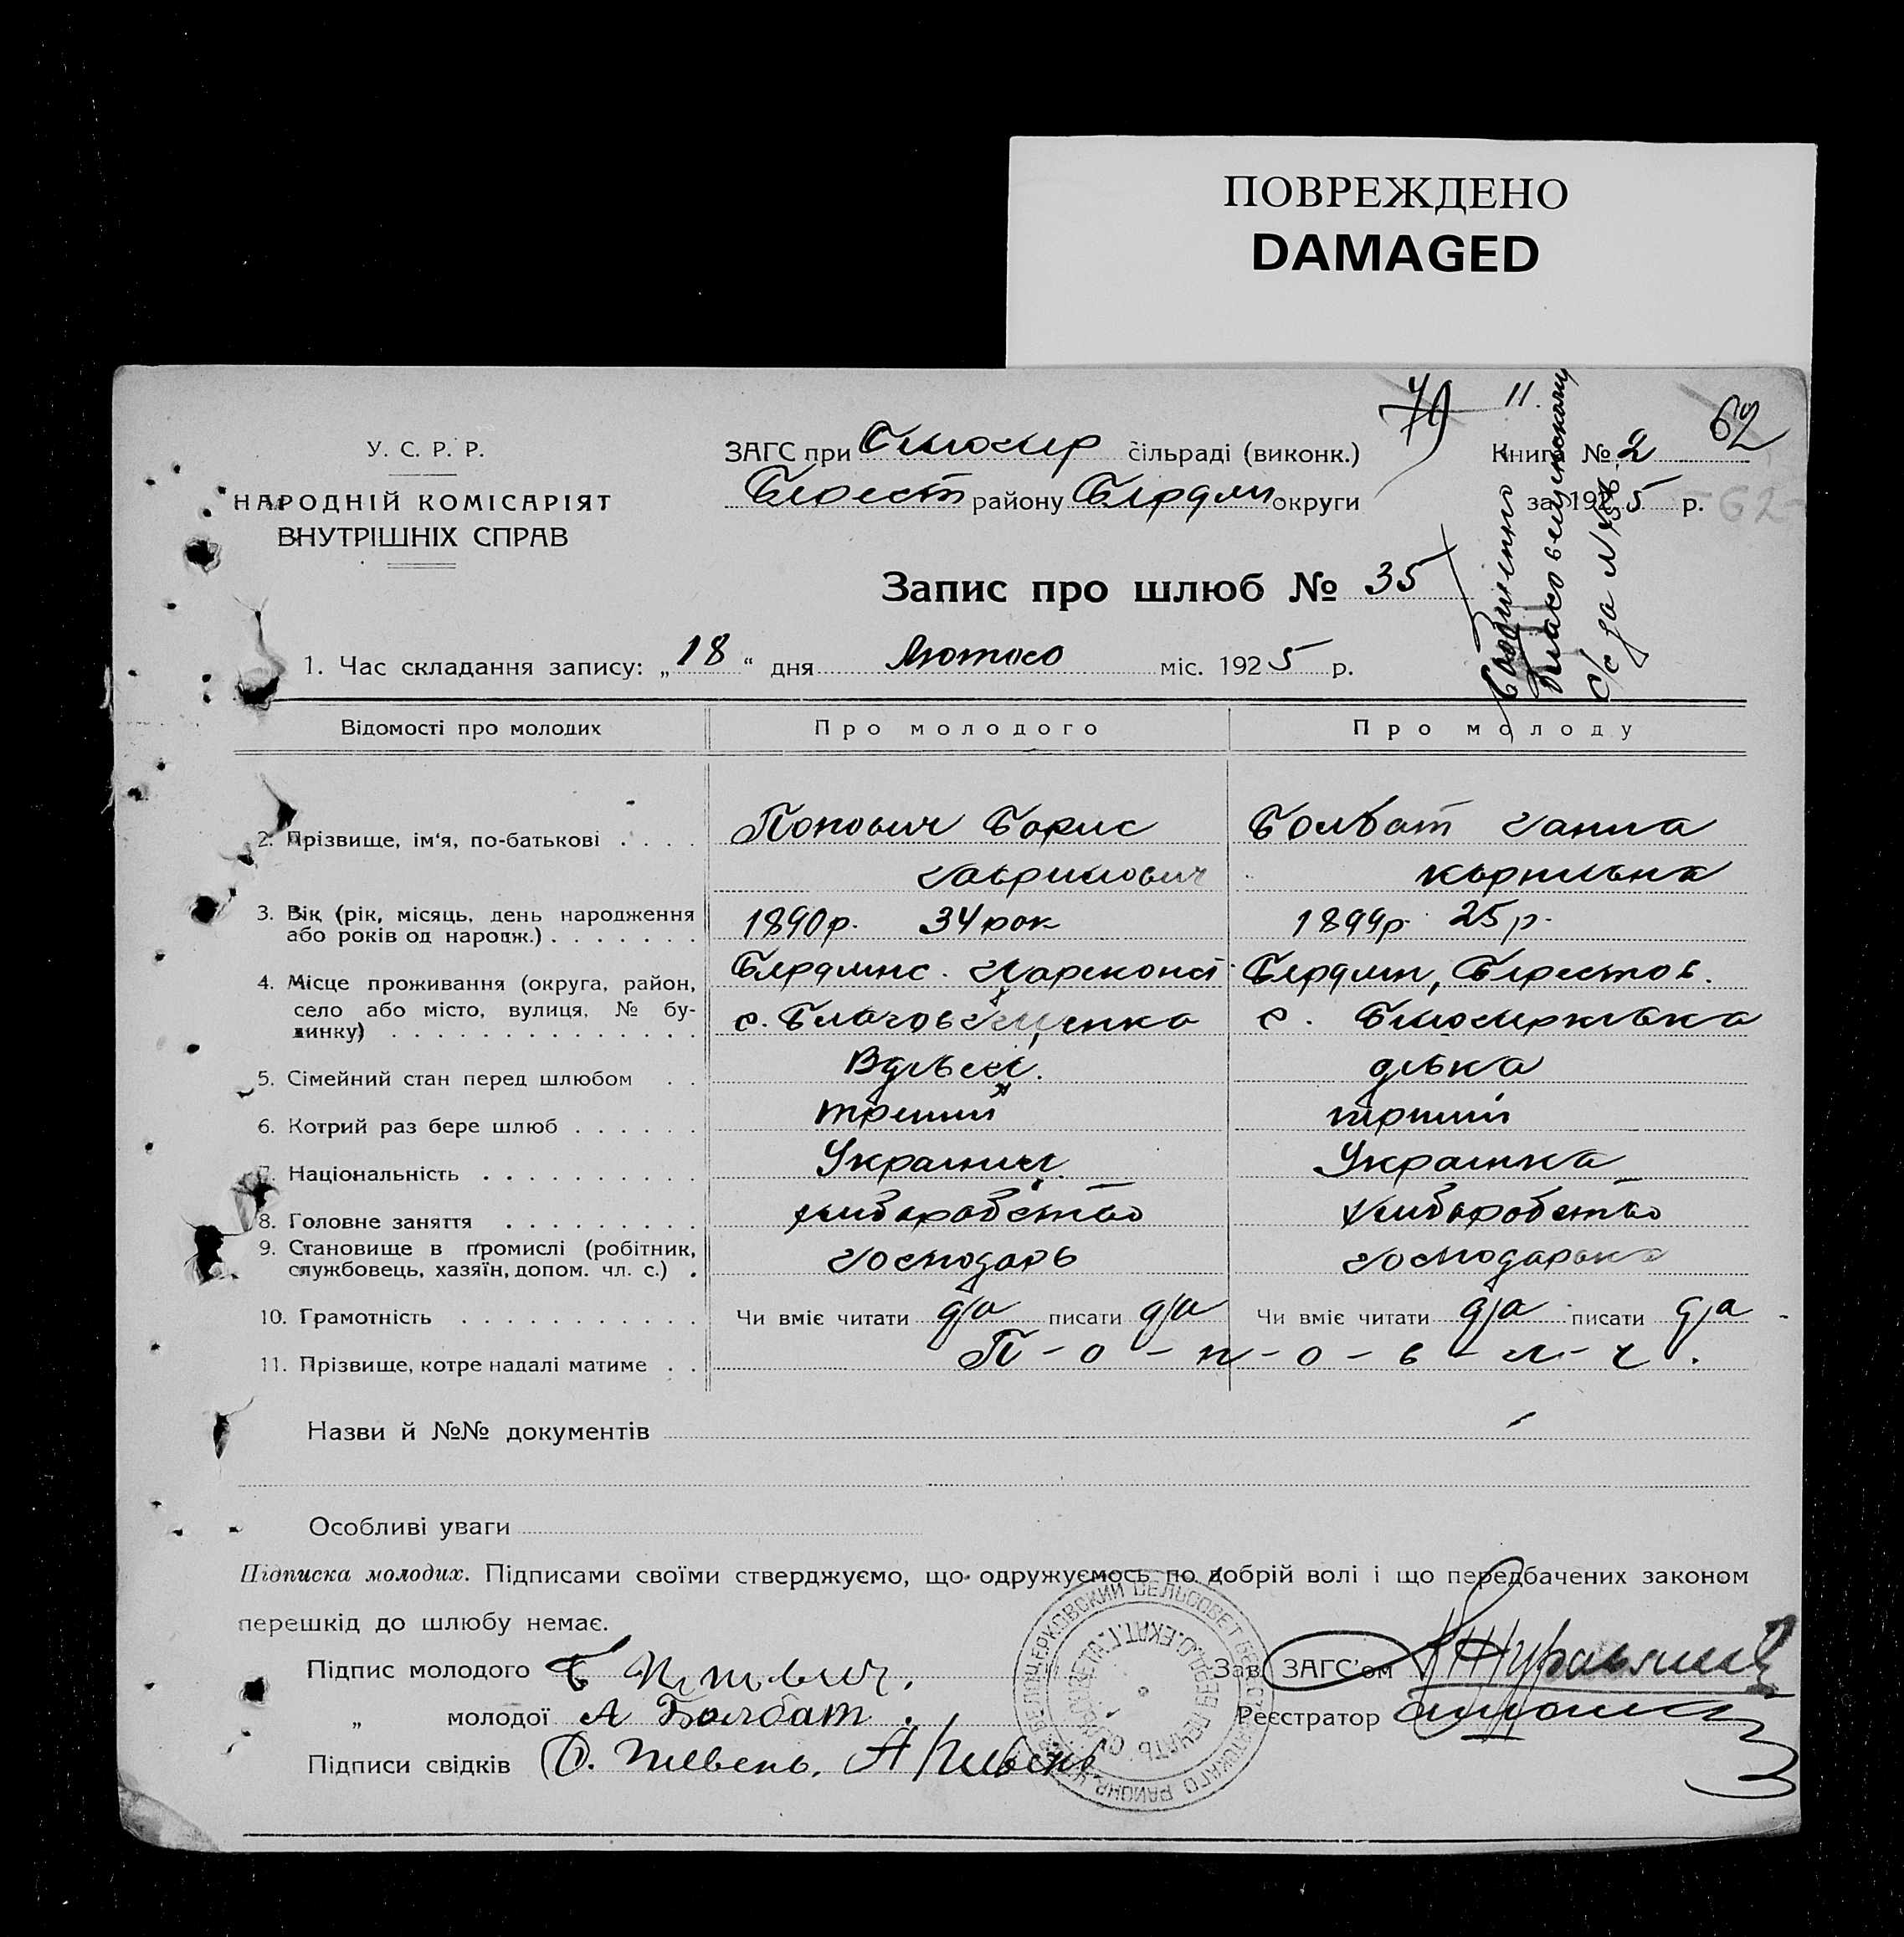 ПОВРЕЖДЕНО
DAMAGED
79 11. 62
У. С. Р. Р.
НАРОДНІЙ КОМІСАРІЯТ
ВНУТРІШНІХ СПРАВ
ЗАГС при Білоцер сільраді (виконк.)
Берест району Бердян округи
Книга № 2
за 1925 р. 62
Запис про шлюб № 35
Благовещенскому
с/с за №
1. Час складання запису: „18“ дня Лютого міс. 1925 р.
Відомості про молодих Про молодого Про молоду
2. Прізвище, ім'я, по-батькові . . . . Попович Борис Болбат Ганна
Гаврилович Кирилівна
3. Вік (рік, місяць, день народження 1890р. 34 рок 1899р. 25 р.
або років од народж.) . . . . . . .
4. Місце проживання (округа, район, Бердянс. Царекон Бердян, Берестов.
село або місто, вулиця, № бу- с. Благовещенка с. Білоцерківка
динку) . . . . . . . . . . . . . .
5. Сімейний стан перед шлюбом . . Вдівец. дівка
6. Котрий раз бере шлюб . . . . . . третий перший
7. Національність . . . . . . . . . . Українец Українка
8. Головне заняття . . . . . . . . . хліборобство хліборобство
9. Становище в промислі (робітник, господарь господарька
службовець, хазяїн, допом. чл. с.) .
10. Грамотність . . . . . . . . . . . Чи вміє читати д/а писати д/а Чи вміє читати д/а писати д/а
11. Прізвище, котре надалі матиме . . П - о - п - о - в - и - ч .
Назви й №№ документів
Особливі уваги
Підписка молодих. Підписами своїми стверджуємо, що одружуємось по добрій волі і що передбачених законом
перешкід до шлюбу немає.
Підпис молодого Б Попович.
Зав. ЗАГС'ом
„ молодої А Болбат.
Реєстратор
Підписи свідків Півень, А Півень